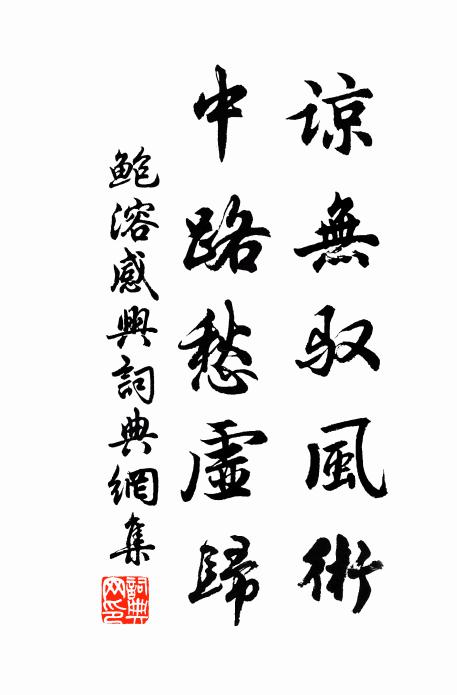 諒無馭風術
中路愁虛歸
鮑溶感興詞典網集
詞典網印